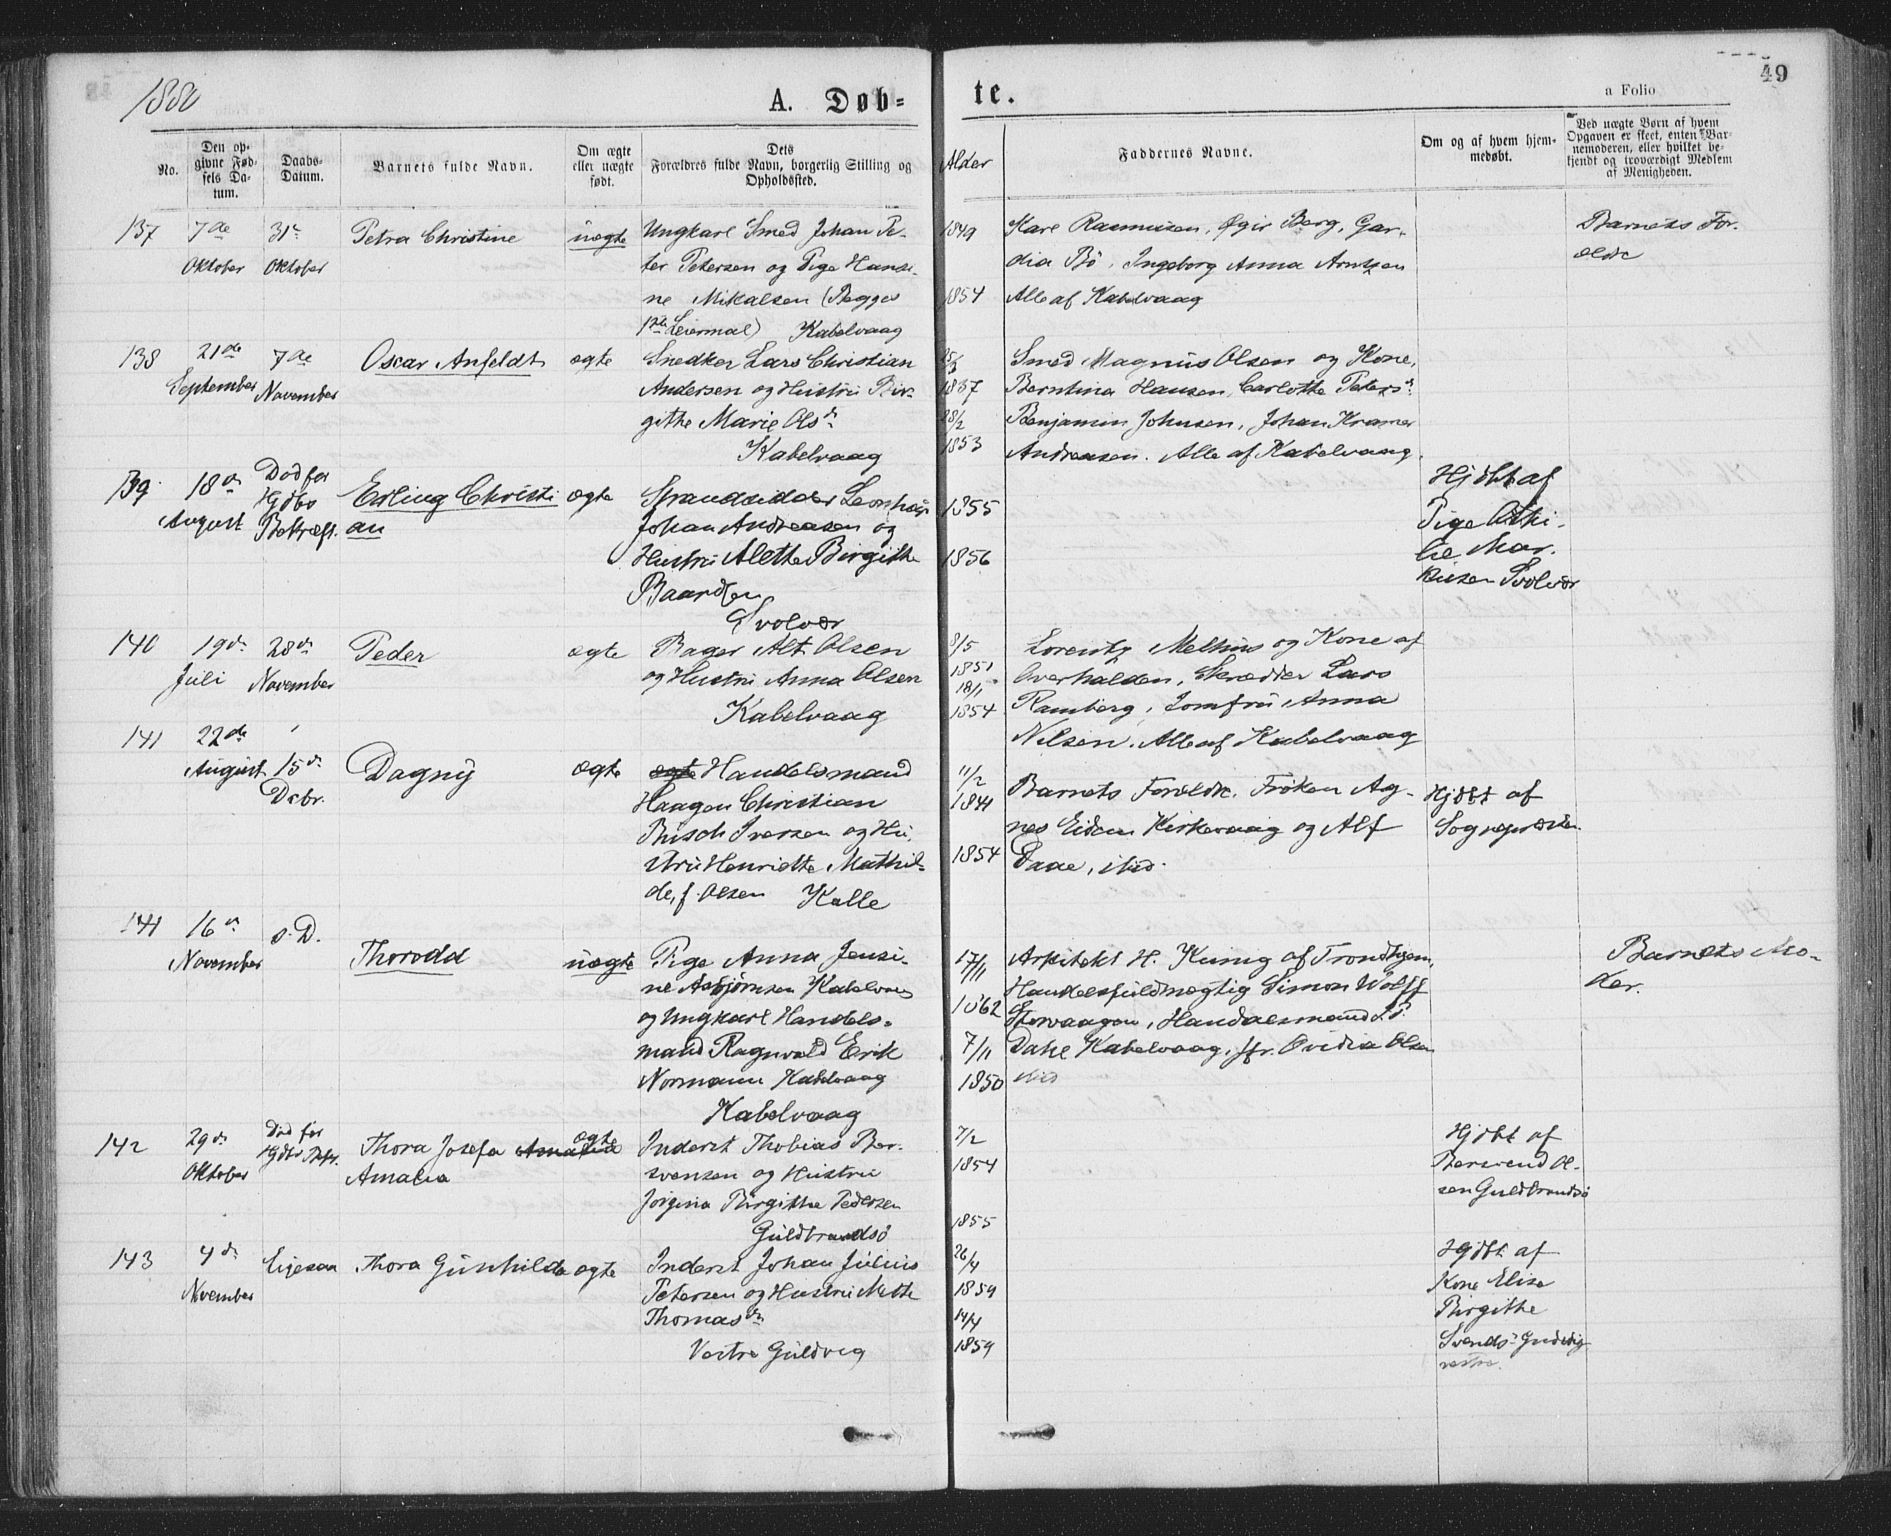 1880
A. Døb-
te.
49
a Folio
No.
Den op-
givne Fød-
sels Da-
tum.
Daabs-
Datum.
Barnets fulde Navn.
Om ægte
eller uægte
født.
Dets
Forældres fulde Navn, borgerlig Stilling og
Opholdssted.
Alder
Faddernes Navne.
Om og af hvem hjem-
medøbt.
Ved uægte Børn af hvem
Opgaven er skeet, enten Bar-
nemoderen, eller hvilket be-
kjendt og troværdigt Medlem
af Menigheden.
137
7de
Oktober
31te
Oktober
Petra Christine
uægte
Ungkarl Smed Johan Pe-
ter Petersen og Pige Hansi-
ne Mikalsen (Begges
1ste Leiermaal) Kabelvaag
1849
1854
Kare Rasmussen, Øgir Berg, Gar-
dia Bö, Ingeborg Anna Arntzen
Alle af Kabelvaag
Barnets For-
ældre
138
21de
September
7de
November
Oscar Anfeldt
ægte
Snedker Lars Christian
Andersen og Hustru Bir-
githe Marie Olsdr
Kabelvaag
1857
28/2
1853
Smed Magnus Olsen og Kone,
Berntina Hansen, Carlotte Petersdr
Benjamin Johnsen, Johan Kramer
Andreasen. Alle af Kabelvaag.
139
18de
August
Död før
Hjdbs
Bekræft.
Erling Christi
an
ægte
Strandsidder Leonhard
Johan Andreasen og
Hustru Alette Birgithe
Baardsen
Svolvær
1855
1856
Hjdbt af
Pige Othi-
lie Mar-
kusen Svolvær
140
19de
Juli
28de
November
Peder
ægte
Bager Alt Olsen
og Hustru Anna Olsen
Kabelvaag
8/5
1851
18/1
1854
Lorentz Melhus og Kone af
Overhalden, Skrædder Lars
Ramberg, Jomfru Anna
Nilsen. Alle af Kabelvaag
141
22de
August
15de
Dcbr.
Dagny
ægte
ægte Handelsmand
Haagen Christian
Busch Iversen og Hu-
stru Henriette Mathil-
de, f. Olsen Kalle
11/2
1841
1854
Barnets Forældre. Frøken Ag-
nes Eidem Kirkevaag og Alf
Daae, ibid.
Hjdbt af
Sognepræsten
141
16de
November
s. D.
Thorodd
uægte
Pige Anna Jensi-
ne Asbjørnsen Kabelvaag
og Ungkarl Handels-
mand Ragnvald Erik
Normann Kabelvaag
Kabelvaag
17/11
1862
7/11
1850
Arkitekt H. Kunig af Trondhjem,
Handelsfuldmægtig Simon Wolff
Storvaagen, Handelsmand
Dahl Kabelvaag, jfr. Ovidia Olsen
ibid
Barnets Mo-
der.
142
29de
Oktober
Död før
Hjdbs Bekr.
Thora Josefa Amalie
Amalia
ægte
Inderst Thobias Ber-
svensen og Hustru
Jörgina Birgitha Pedersen
Guldbrandsö
7/2
1854
1855
Hjdbt af
Bersvend Ol-
sen Guldbrandsö
143
4de
November
Ligesaa
Thora Gunhilda
ægte
Inderst Johan Julius
Petersen og Hustru Mette
Thomasdr
Vestre Guldvig
26/4
1859
14/4
1859
Hjdbt af
Kone Elise
Birgithe
Svendsdr Guldvig
vestre.